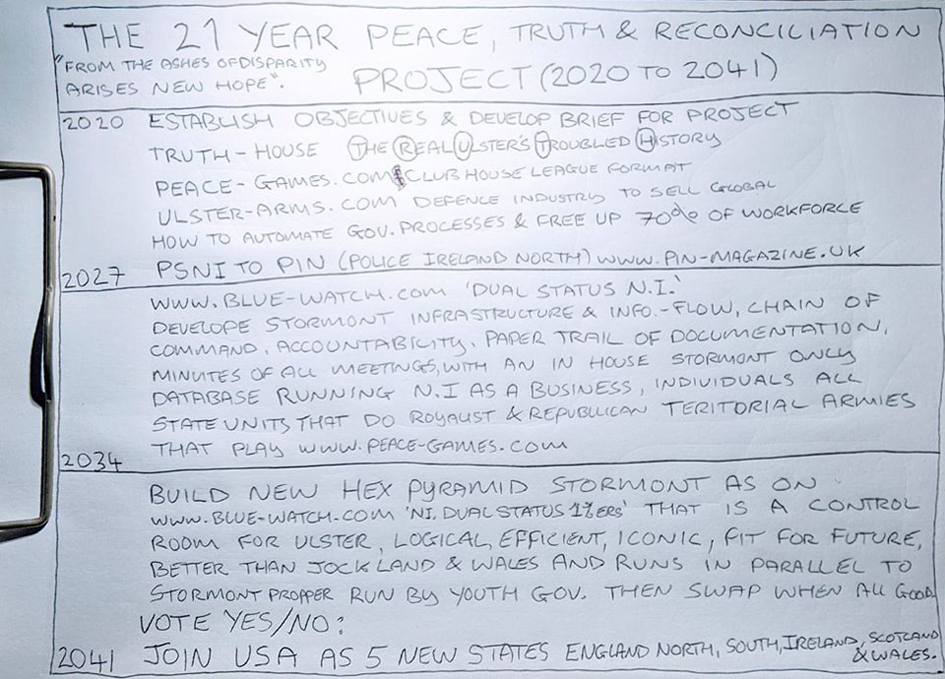 THE 21 YEAR PEACE, TRUTH & RECONCILIATION
"FROM THE ASHES OF DISPARITY
ARISES NEW HOPE".
PROJECT (2020 TO 2041)
2020 ESTABLISH OBJECTIVES & DEVELOP BRIEF FOR PROJECT
TRUTH-HOUSE THE REAL ULSTER'S TROUBLED HISTORY
PEACE-GAMES.COM CLUB HOUSE LEAGUE FORMAT
ULSTER-ARMS.COM DEFENCE INDUSTRY TO SELL GLOBAL
HOW TO AUTOMATE GOV. PROCESSES & FREE UP 70% OF WORKFORCE
2027 PSNI TO PIN (POLICE IRELAND NORTH) WWW.PIN-MAGAZINE.UK
WWW.BLUE-WATCH.COM 'DUAL STATUS N.I.'
DEVELOPE STORMONT INFRASTRUCTURE & INFO.-FLOW, CHAIN OF
COMMAND, ACCOUNTABILITY, PAPER TRAIL OF DOCUMENTATION,
MINUTES OF ALL MEETINGS, WITH AN IN HOUSE STORMONT ONLY
DATABASE RUNNING N.I AS A BUSINESS, INDIVIDUALS ALL
STATE UNITS THAT DO ROYALIST & REPUBLICAN TERITORIAL ARMIES
2034 THAT PLAY WWW.PEACE-GAMES.COM
BUILD NEW HEX PYRAMID STORMONT AS ON
WWW.BLUE-WATCH.COM 'NI. DUAL STATUS 1%ERS' THAT IS A CONTROL
ROOM FOR ULSTER, LOGICAL, EFFICIENT, ICONIC, FIT FOR FUTURE,
BETTER THAN JOCK LAND & WALES AND RUNS IN PARALLEL TO
STORMONT PROPPER RUN BY YOUTH GOV. THEN SWAP WHEN ALL GOOD
VOTE YES/NO?
2041 JOIN USA AS 5 NEW STATES ENGLAND NORTH, SOUTH, IRELAND, SCOTLAND
& WALES.